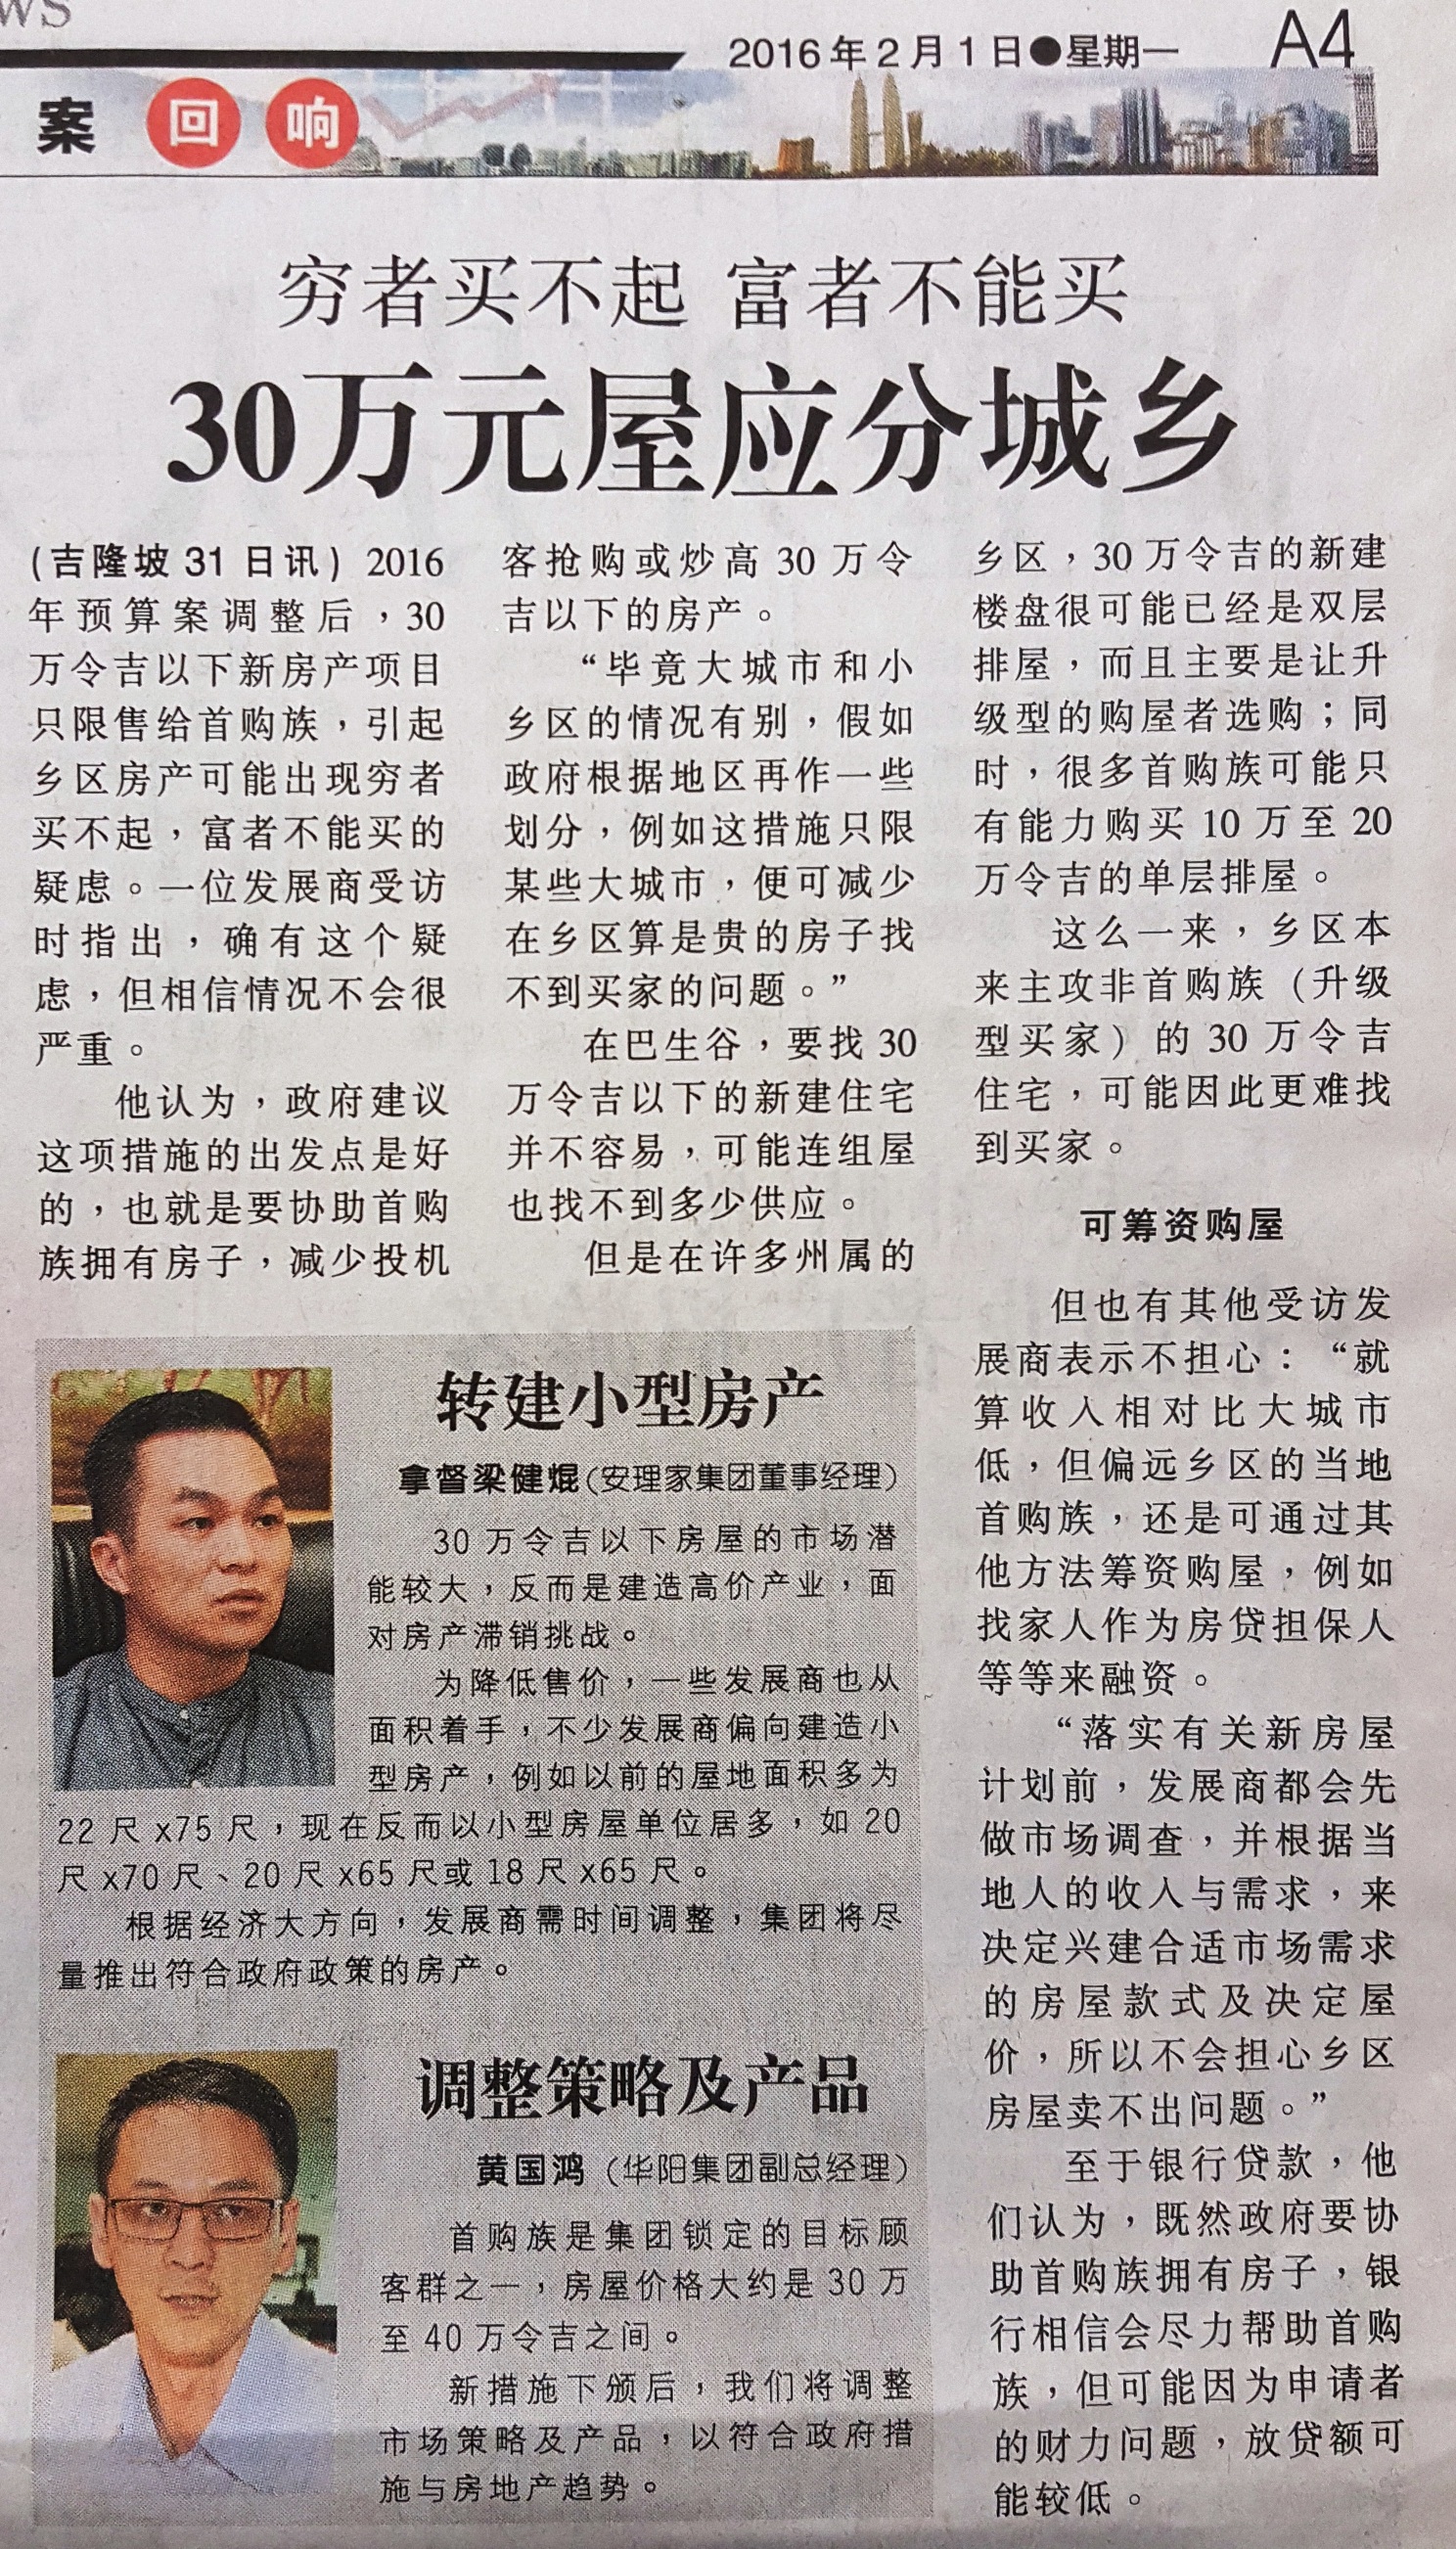 WS
2016年2月1日●星期一
A4
案 回 响
穷者买不起 富者不能买
30万元屋应分城乡
(吉隆坡31日讯) 2016
年预算案调整后，30
万令吉以下新房产项目
只限售给首购族，引起
乡区房产可能出现穷者
买不起，富者不能买的
疑虑。一位发展商受访
时指出，确有这个疑
虑，但相信情况不会很
严重。
他认为，政府建议
这项措施的出发点是好
的，也就是要协助首购
族拥有房子，减少投机
客抢购或炒高30万令
吉以下的房产。
“毕竟大城市和小
乡区的情况有别，假如
政府根据地区再作一些
划分，例如这措施只限
某些大城市，便可减少
在乡区算是贵的房子找
不到买家的问题。”
在巴生谷，要找30
万令吉以下的新建住宅
并不容易，可能连组屋
也找不到多少供应。
但是在许多州属的
乡区，30万令吉的新建
楼盘很可能已经是双层
排屋，而且主要是让升
级型的购屋者选购；同
时，很多首购族可能只
有能力购买10万至20
万令吉的单层排屋。
这么一来，乡区本
来主攻非首购族（升级
型买家）的30万令吉
住宅，可能因此更难找
到买家。
可筹资购屋
但也有其他受访发
展商表示不担心：“就
算收入相对比大城市
低，但偏远乡区的当地
首购族，还是可通过其
他方法筹资购屋，例如
找家人作为房贷担保人
等等来融资。
“落实有关新房屋
计划前，发展商都会先
做市场调查，并根据当
地人的收入与需求，来
决定兴建合适市场需求
的房屋款式及决定屋
价，所以不会担心乡区
房屋卖不出问题。”
至于银行贷款，他
们认为，既然政府要协
助首购族拥有房子，银
行相信会尽力帮助首购
族，但可能因为申请者
的财力问题，放贷额可
能较低。
转建小型房产
拿督梁健焜(安理家集团董事经理)
30万令吉以下房屋的市场潜
能较大，反而是建造高价产业，面
对房产滞销挑战。
为降低售价，一些发展商也从
面积着手，不少发展商偏向建造小
型房产，例如以前的屋地面积多为
22尺x75尺，现在反而以小型房屋单位居多，如20
尺x70尺、20尺x65尺或18尺x65尺。
根据经济大方向，发展商需时间调整，集团将尽
量推出符合政府政策的房产。
调整策略及产品
黄国鸿（华阳集团副总经理）
首购族是集团锁定的目标顾
客群之一，房屋价格大约是30万
至40万令吉之间。
新措施下颁后，我们将调整
市场策略及产品，以符合政府措
施与房地产趋势。